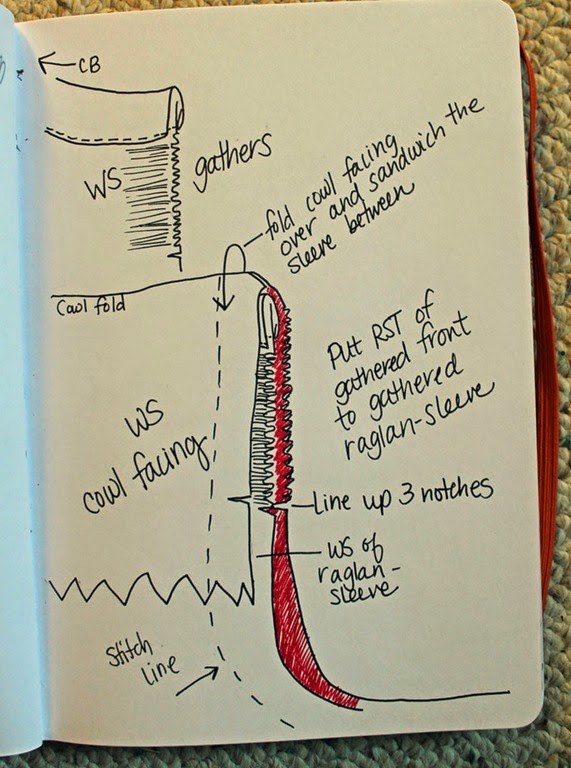 CB
WS
gathers
fold cowl facing
over and sandwich the
sleeve between
Cowl fold
Put RST of
gathered front
to gathered
raglan-sleeve
WS
cowl facing
Line up 3 notches
WS of
raglan-
sleeve
Stitch
line